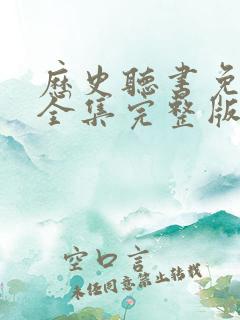 歷史聽書免
全集完整版
空口言
未经同意禁止转载